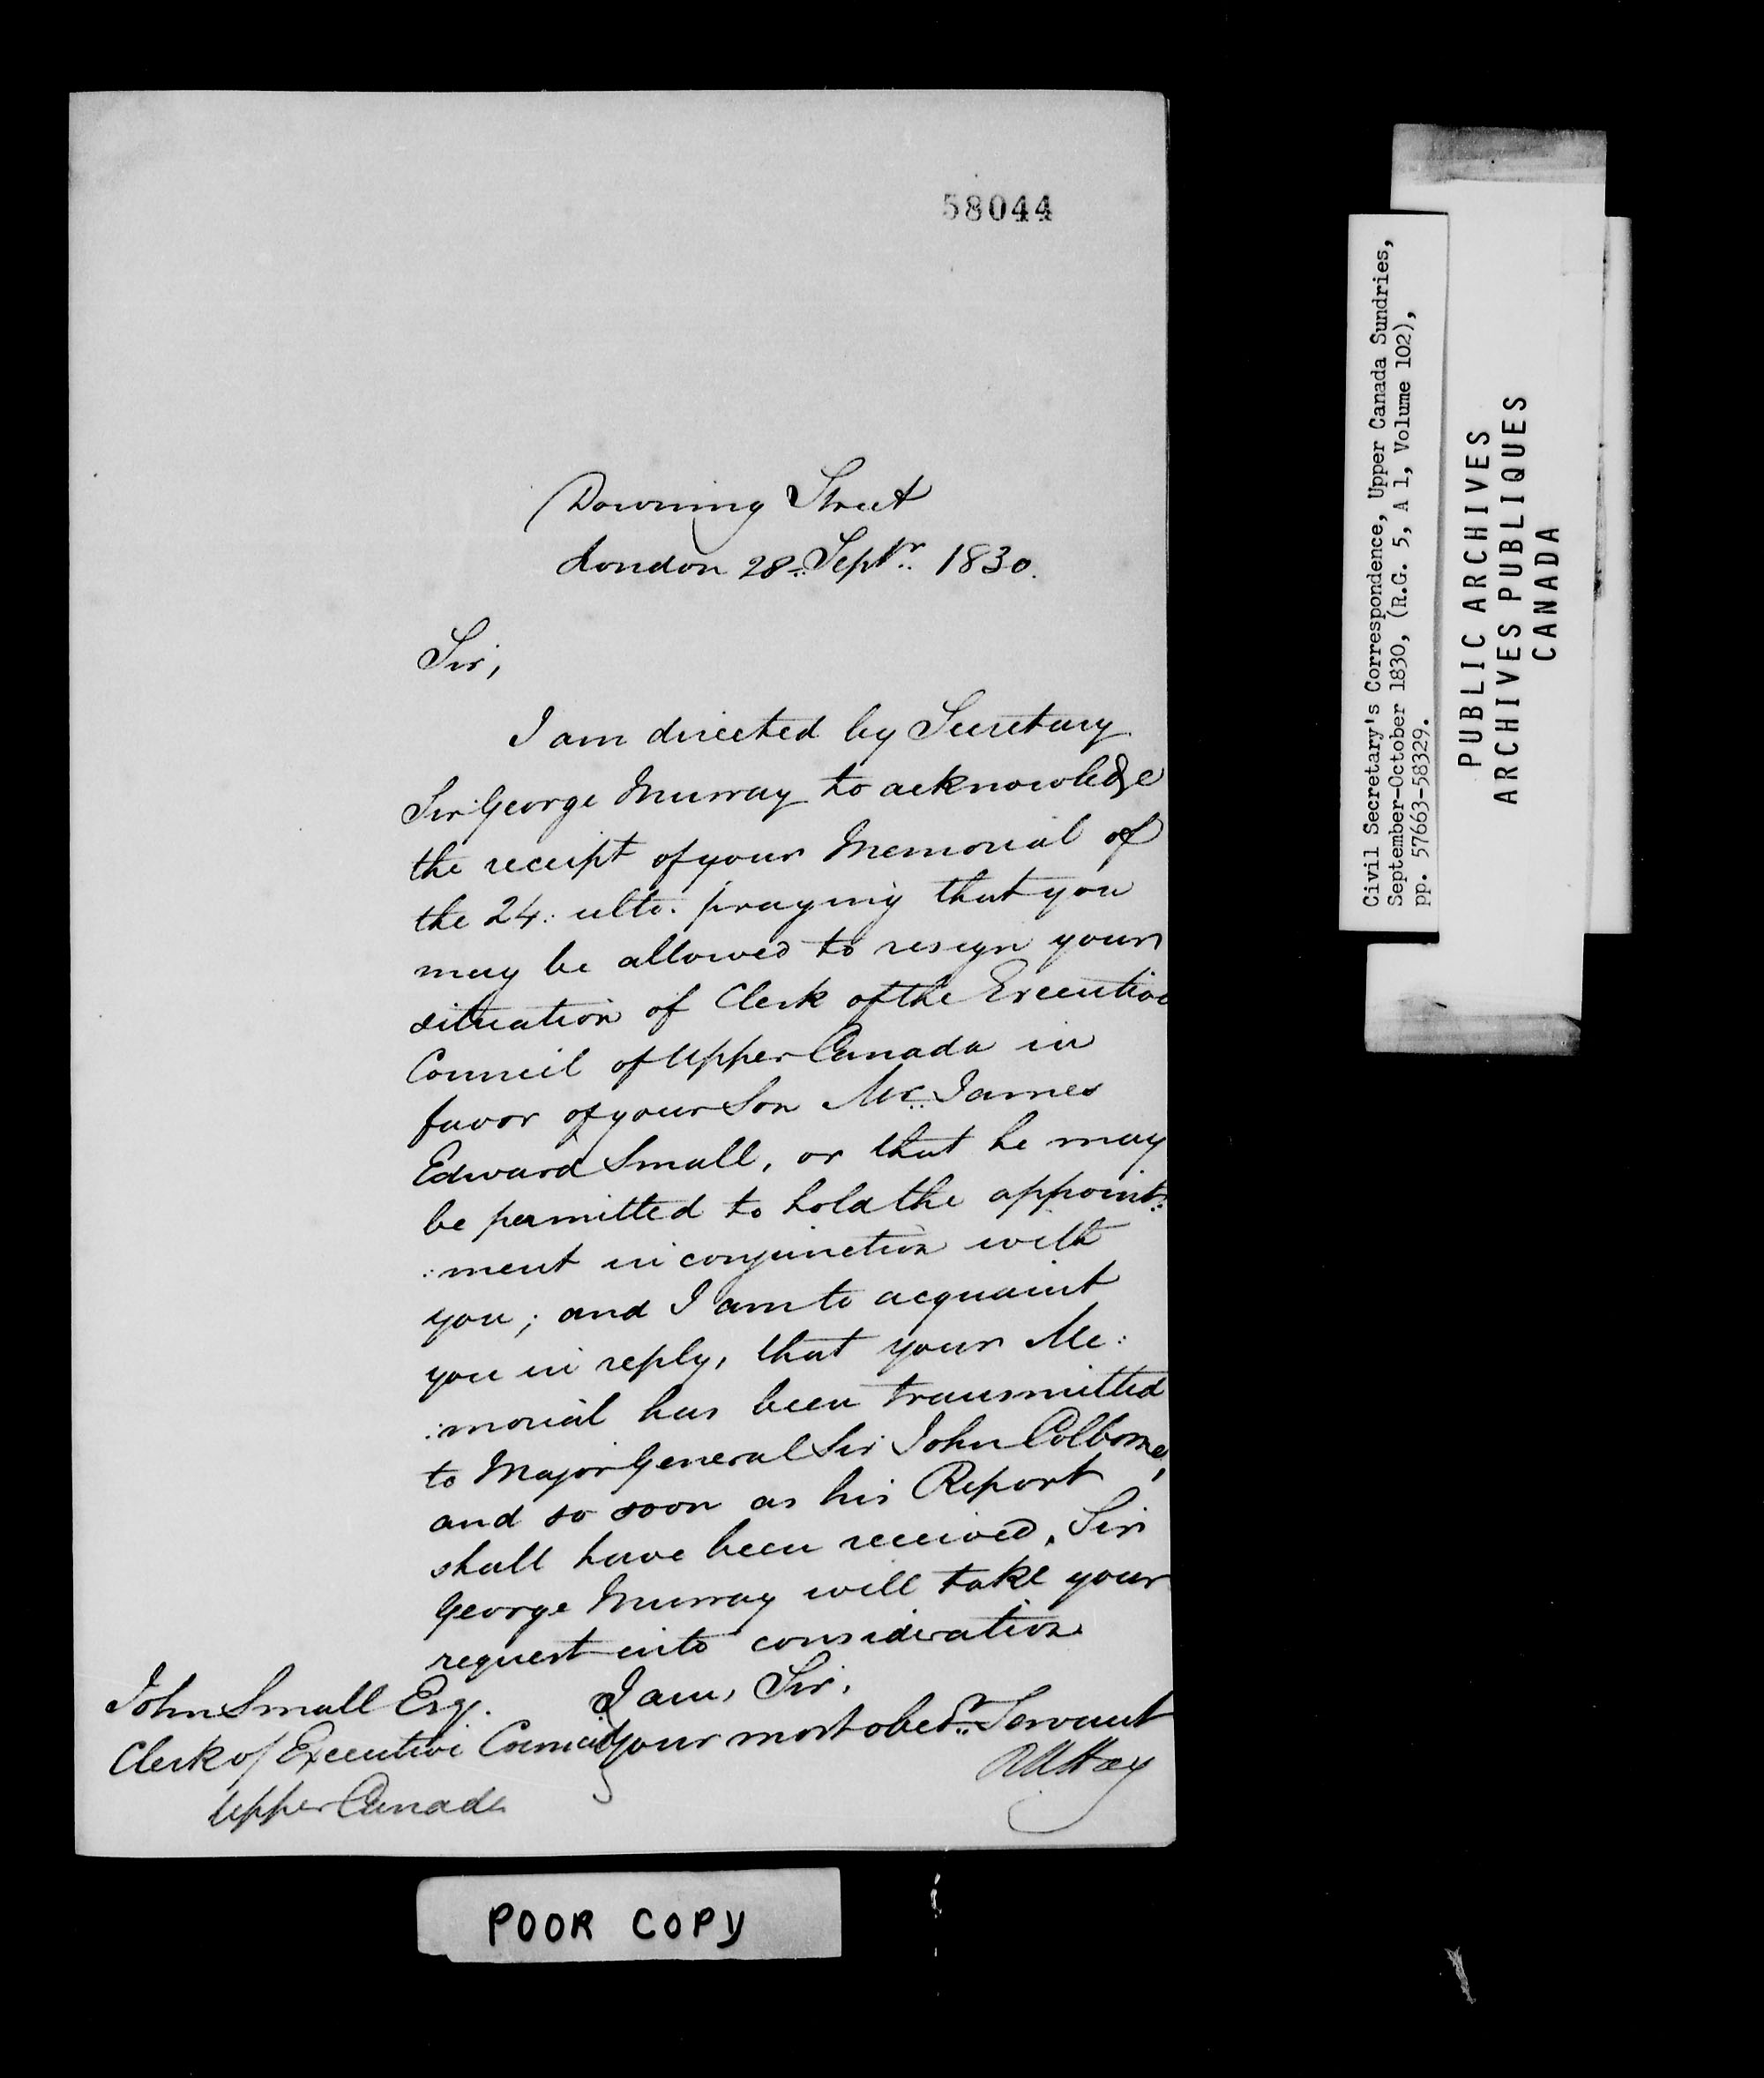 58044
Downing Street
London 28. Septr. 1830.
Sir,
I am directed by Secretary
Sir George Murray to acknowledge
the receipt of your Memorial of
the 24: ulto. praying that you
may be allowed to resign your
situation of Clerk of the Executive
Council of Upper Canada in
favor of your Son Mr. James
Edward Small, or that he may
be permitted to hold the appoint:
:ment in conjunction with
you; and I am to acquaint
you in reply, that your Me:
:morial has been transmitted
to Major General Sir John Colborne,
and so soon as his Report
shall have been received, Sir
George Murray will take your
request into consideration
I am, Sir,
Your most obedt. Servant
RW Hay
John Small Esq.
Clerk of Executive Council
Upper Canada
POOR COPY
Civil Secretary's Correspondence, Upper Canada Sundries,
September-October 1830, (R.G. 5, A 1, Volume 102),
pp. 57663-58329.
PUBLIC ARCHIVES
ARCHIVES PUBLIQUES
CANADA